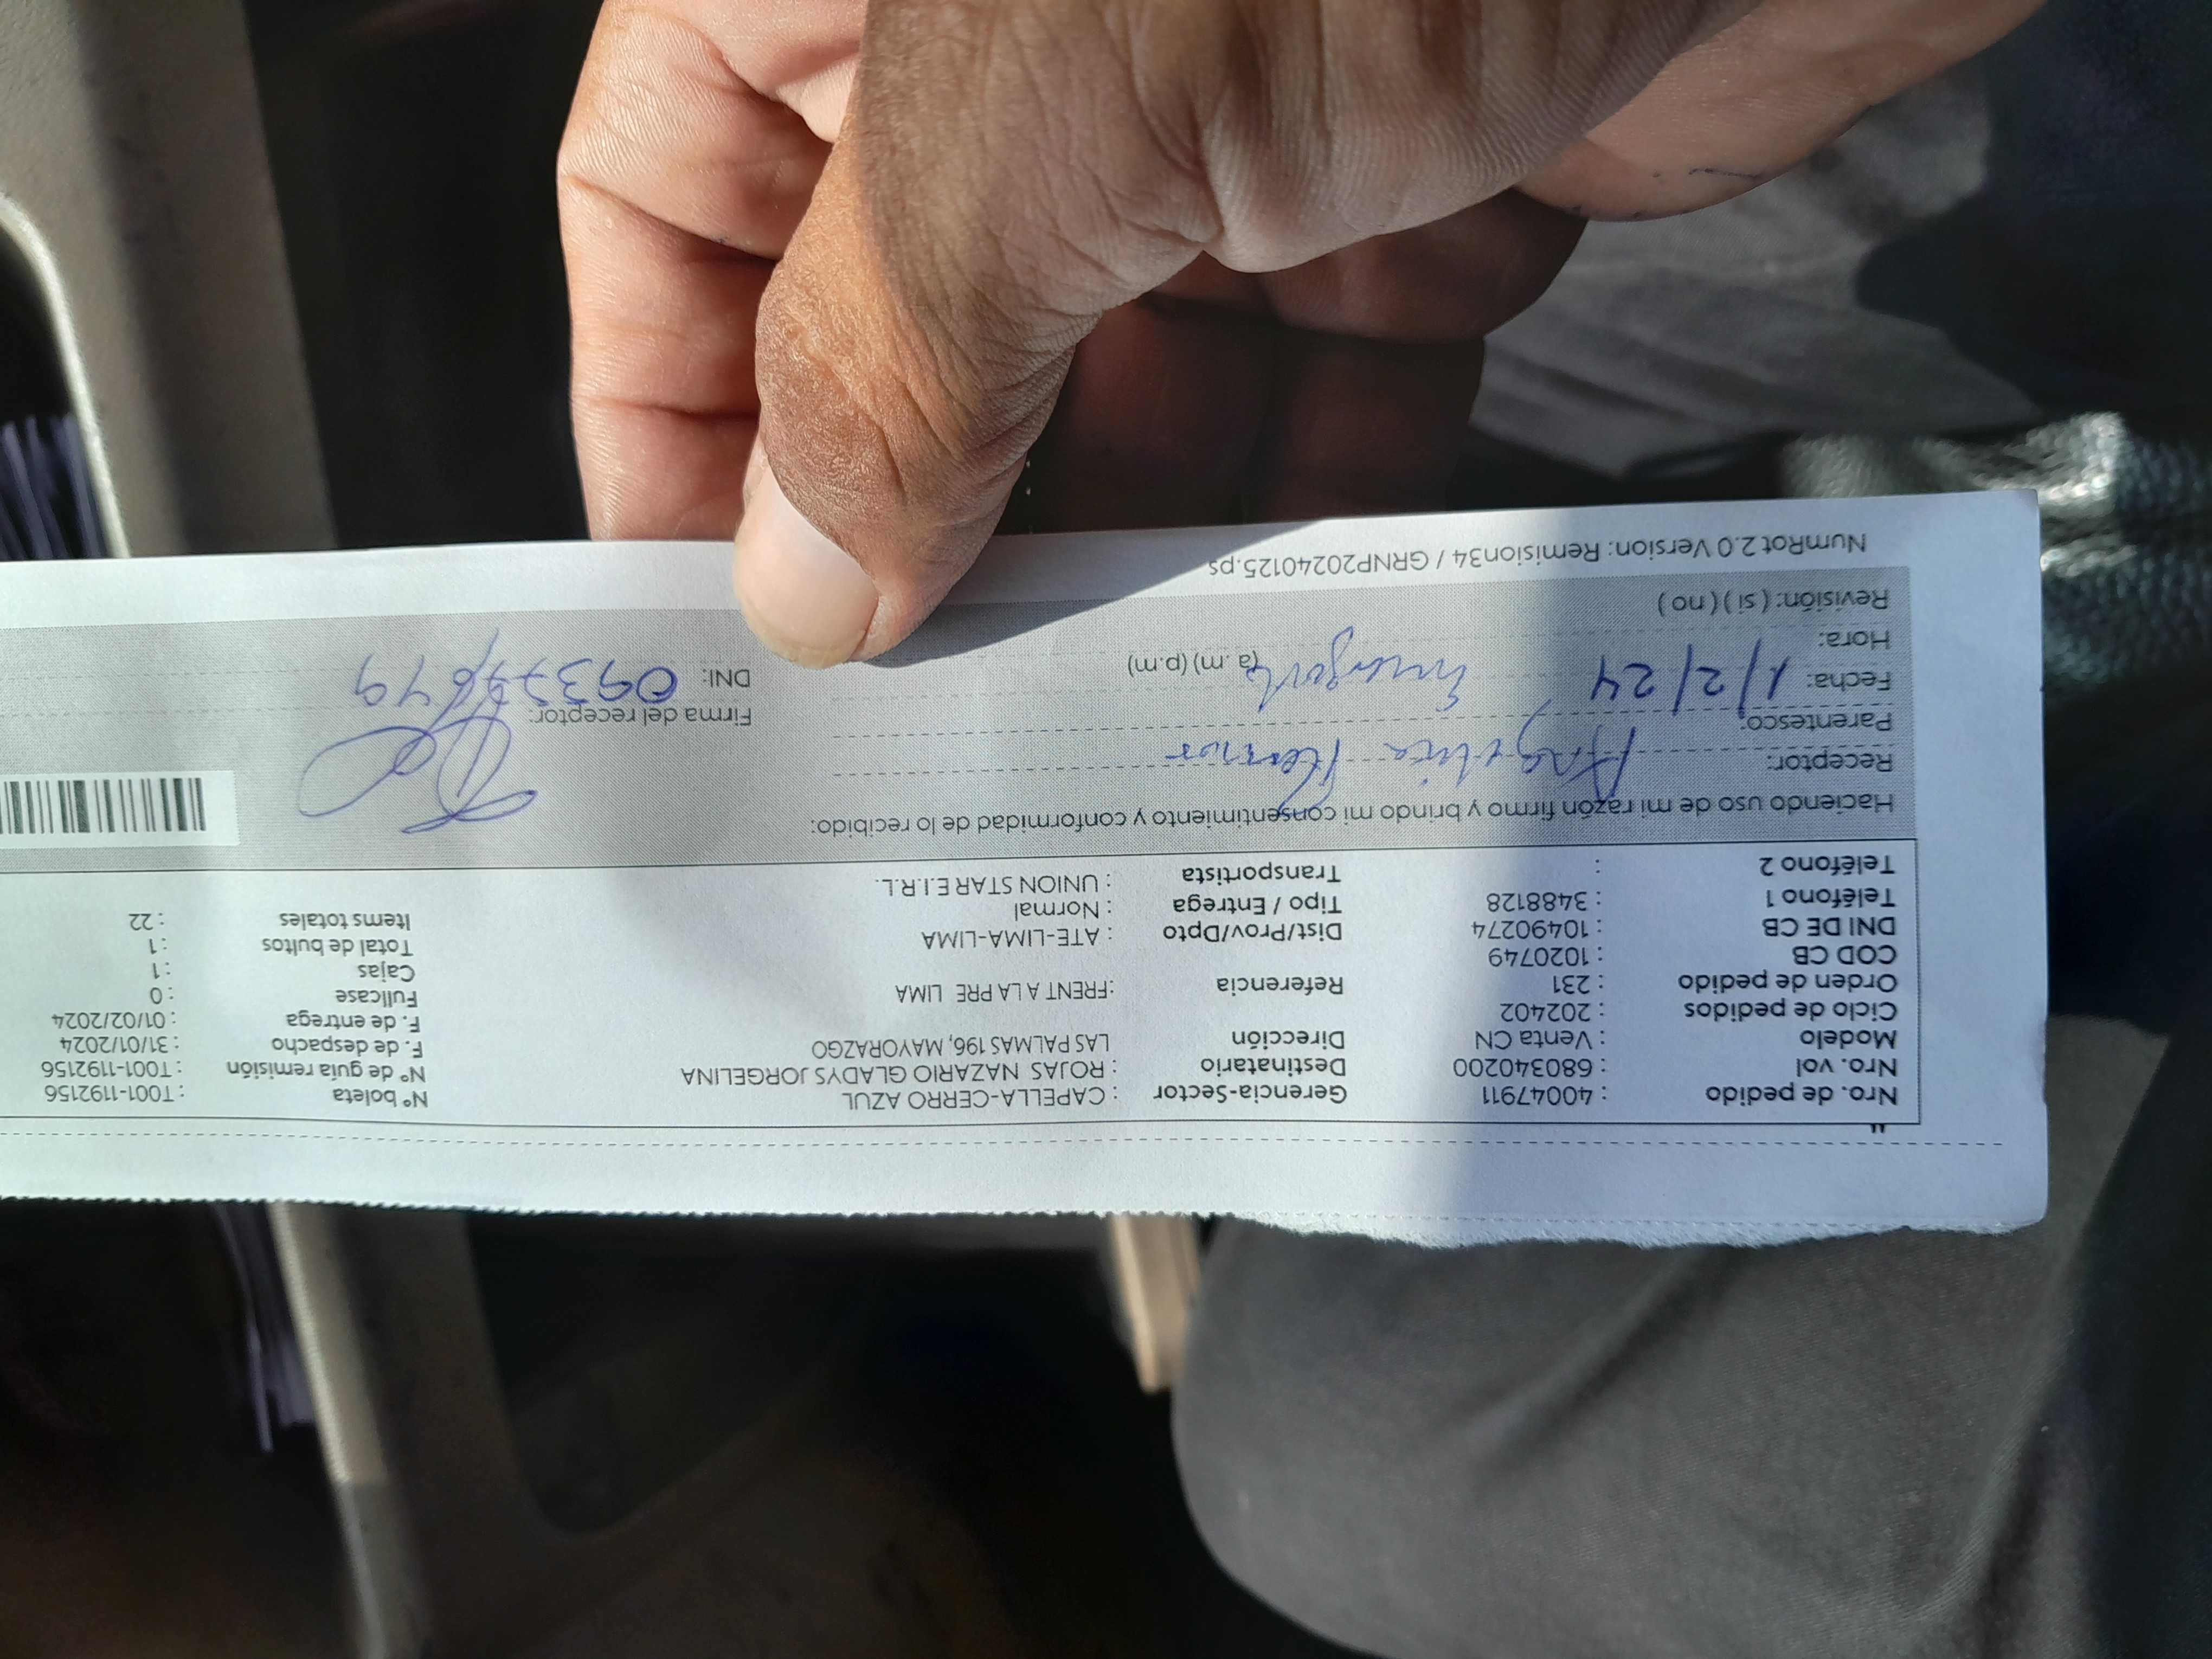 Nro. de pedido : 40047911 Gerencia-Sector : CAPELLA-CERRO AZUL Nº boleta : T001-1192156
Nro. vol : 680340200 Destinatario : ROJAS NAZARIO GLADYS JORGELINA Nº de guía remisión : T001-1192156
Modelo : Venta CN Dirección LAS PALMAS 196, MAYORAZGO F. de despacho : 31/01/2024
Ciclo de pedidos : 202402 F. de entrega : 01/02/2024
Orden de pedido : 231 Referencia :FRENT A LA PRE LIMA Fullcase : 0
COD CB : 1020749 Cajas : 1
DNI DE CB : 10490274 Dist/Prov/Dpto : ATE-LIMA-LIMA Total de bultos : 1
Teléfono 1 : 3488128 Tipo / Entrega : Normal Items totales : 22
Teléfono 2 : Transportista : UNION STAR E.I.R.L.
Haciendo uso de mi razón firmo y brindo mi consentimiento y conformidad de lo recibido:
Receptor: Angelica
Parentesco: Firma del receptor:
Fecha: 1/2/24 DNI:
Hora: (a.m) (p.m)
Revisión: ( si ) ( no )
NumRot 2.0 Version: Remision34 / GRNP20240125.ps